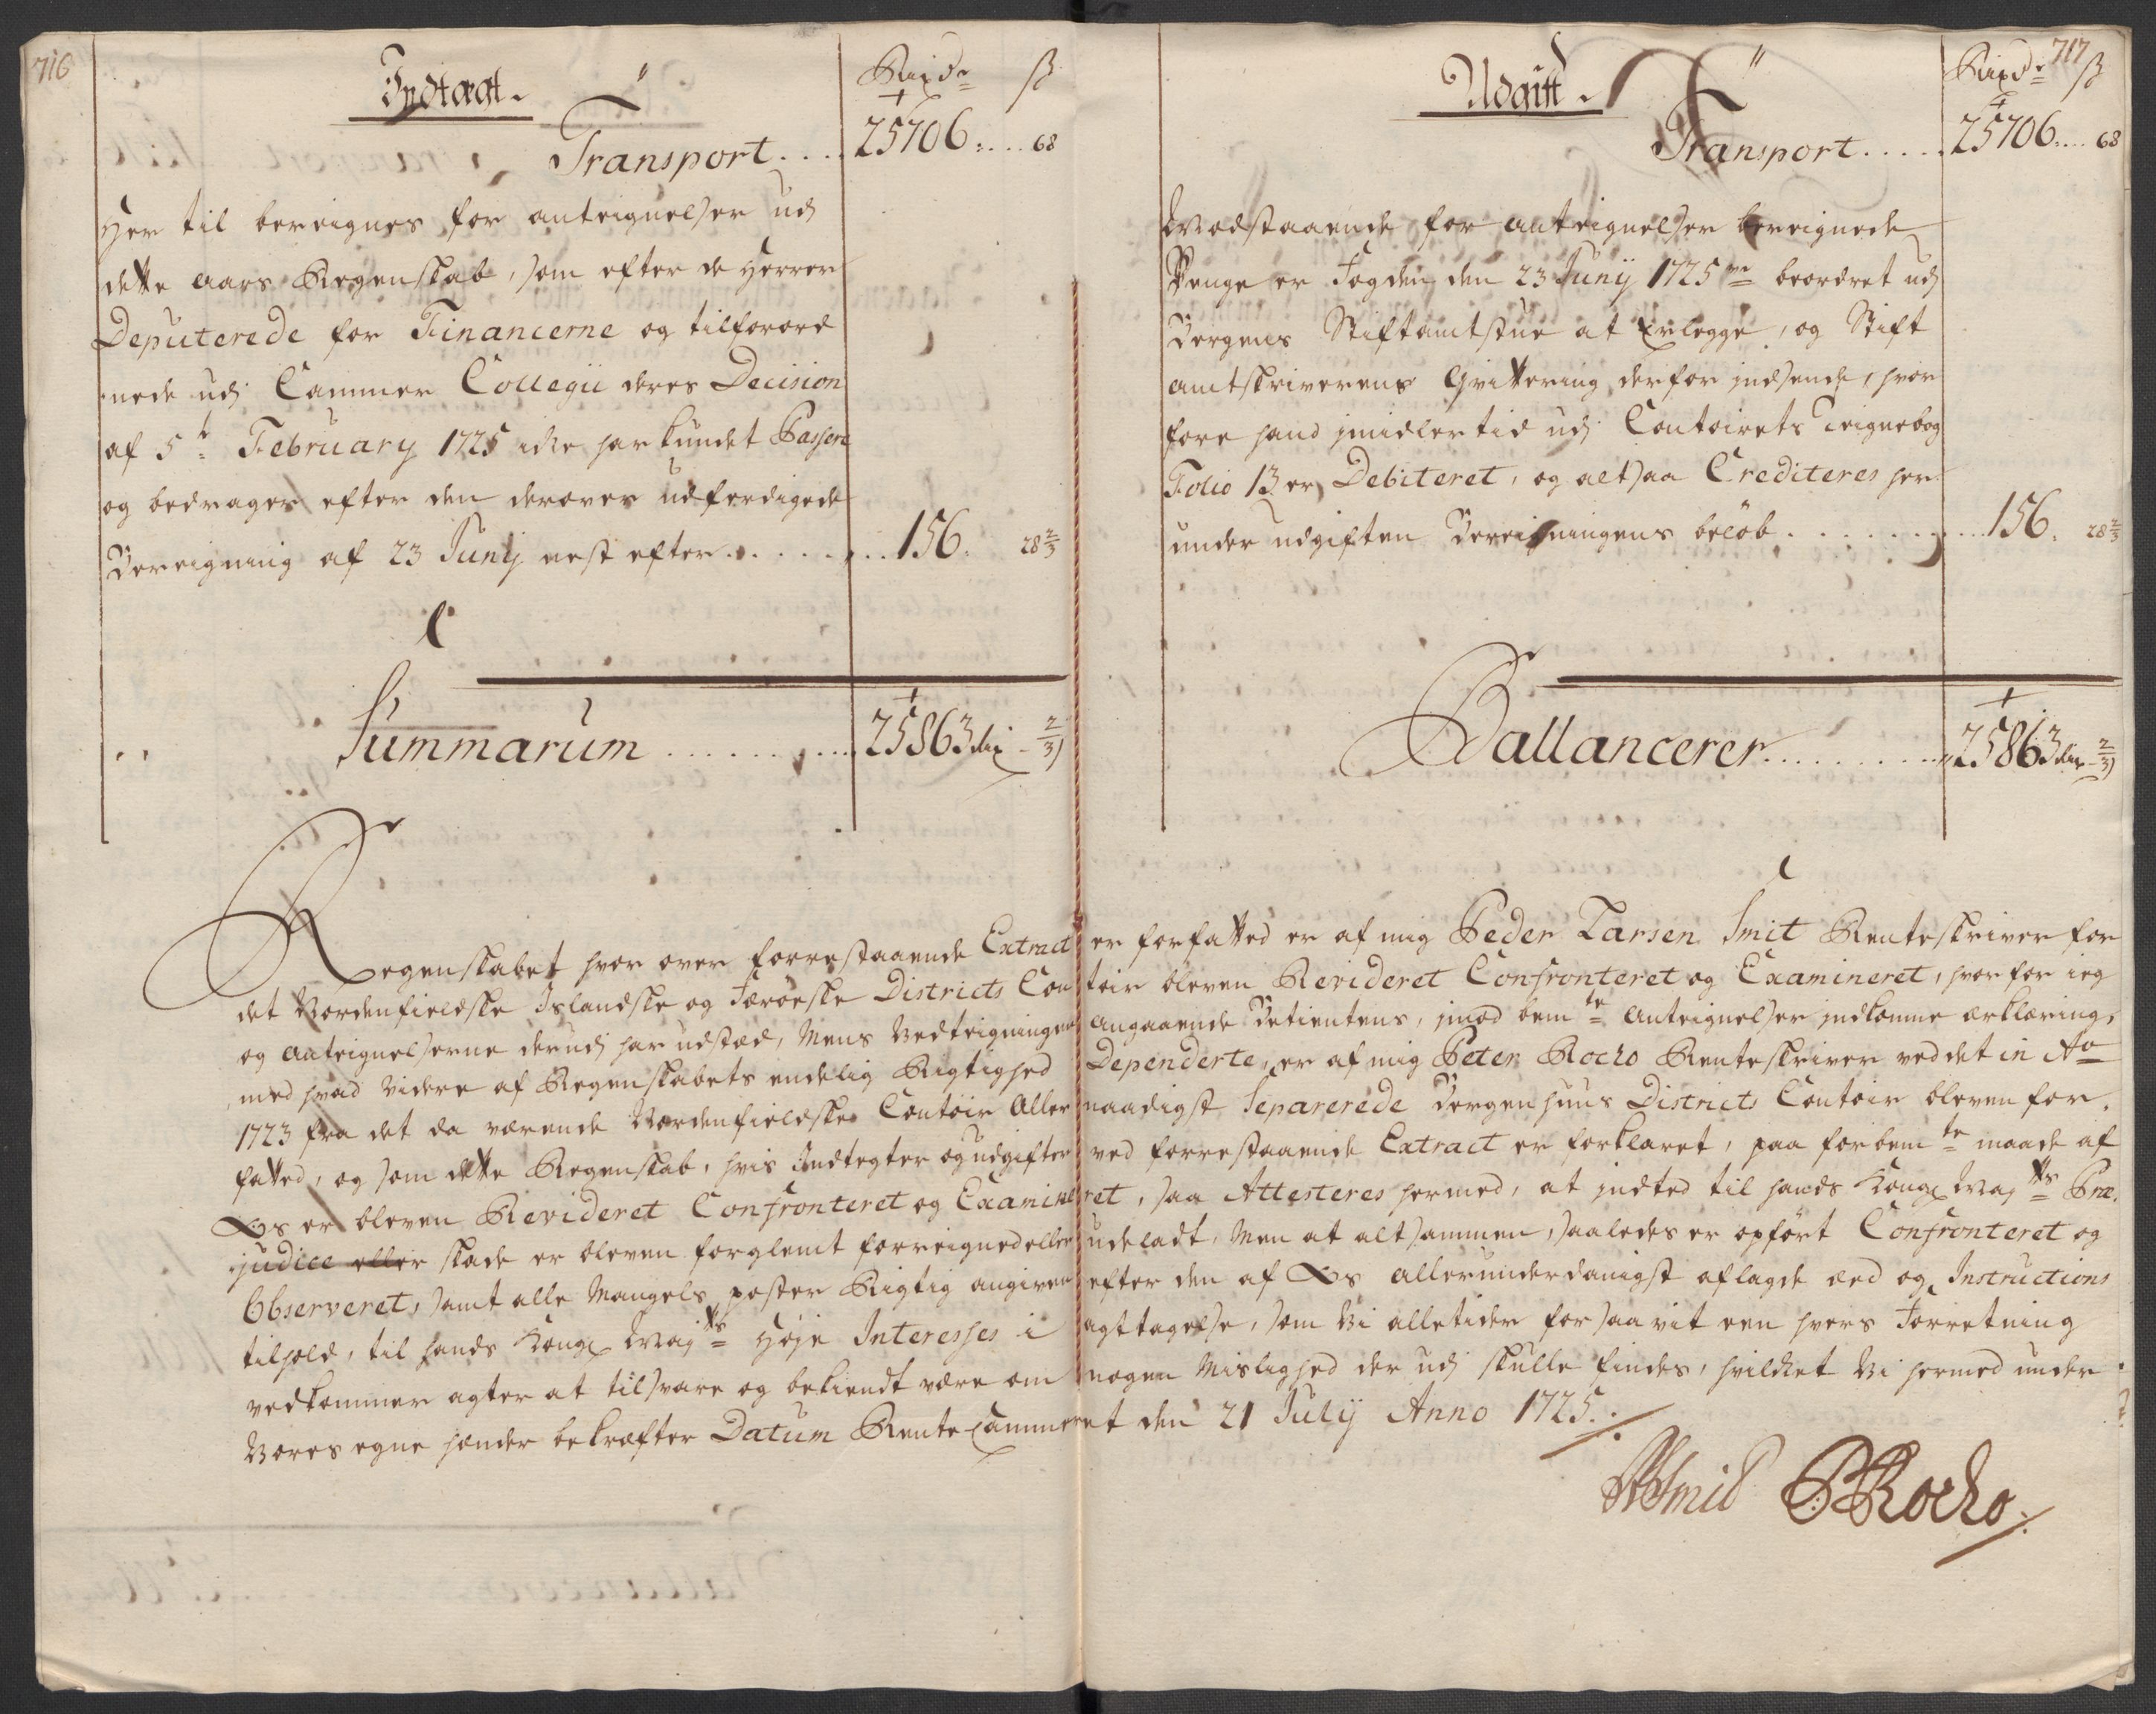 716
Indtægt.
Rixdr ß
Transport . . . . 25706 : . . . 68
Her til bereignes for anteignelser udj
dette aars Regenskab, som efter de Herrer
Deputerede for Financerne og tilforord
nede udj Cammer Collegii deres Decision
af 5t February 1725 icke har kundet Passere
og bedrager efter den derover udferdigede
Bereigning af 23 Junij nest efter . . . . . . . 156. 28 2/3
Summarum . . . . . . . . . 25863 2/3
717
Udgift.
Rixdr ß
Transport . . . . . 25706 . . . . 68
Modstaaende for anteignelser bereignede
Penge er Fogden den 23 Junij 1725 beordret udj
Bergens Stiftamtstue at Erlegge, og Stift
amtskriverens Qvittering derfor indsende, hvor
fore hand jmidlertid udj Contoirets Teignebog
Folio 13 er Debiteret, og altsaa Crediteres her
under udgiften Bereigningens belöb . . . . . . . . . 156. 28 2/3
Ballancerer . . . . . . . . . . 25863 2/3
Regenskabet hvor over forrestaaende Extract er forfatted er af mig Peder Larsen Smit Renteskriver for
det Nordenfieldske Islandske og Færöeske Districts Contoir bleven Revideret Confronteret og Examineret, hvorfor ieg
og anteignelserne derudj har udstæd, Mens Vedteigningen angaaende Betientens, jmod bemte anteignelser indkomne erklæring,
med hvad videre af Regenskabets endelig Rigtighed Dependerte, er af mig Peter Rocho Renteskriver ved det in Ao
1723 fra det da værende Nordenfieldske Contoir Aller naadigst Separerede Bergenhuus Districts Contoir bleven for,
fatted, og som dette Regenskab, hvis Indtegter og udgifter ved forrestaaende Extract er forklaret, paa forbemte maade af
Os er bleven Revideret Confronteret og Examineret, saa Attesteres hermed, at jndted til hands Kongl Mayts Præ,
judice eller skade er bleven forglemt forreigned eller udeladt, Men at altsammen, saaledes er opfört Confronteret og
Observeret, samt alle Mangels poster Rigtig angiven efter den af Os allerunderdanigst aflagde eed og Instructions
tilhold, til hands Kongl Mayts Höje Interesses i agttagelse, som Vi alletider forsaavit een hvers Forretning
vedkommer agter at tilsvare og bekiendt være om nogen Mislighed der udj skulle findes, hvilcket Vi hermed under
Vores egne hænder bekræfter Datum Rente Cammeret den 21 Julij Anno 1725.
PLSmid PRocho